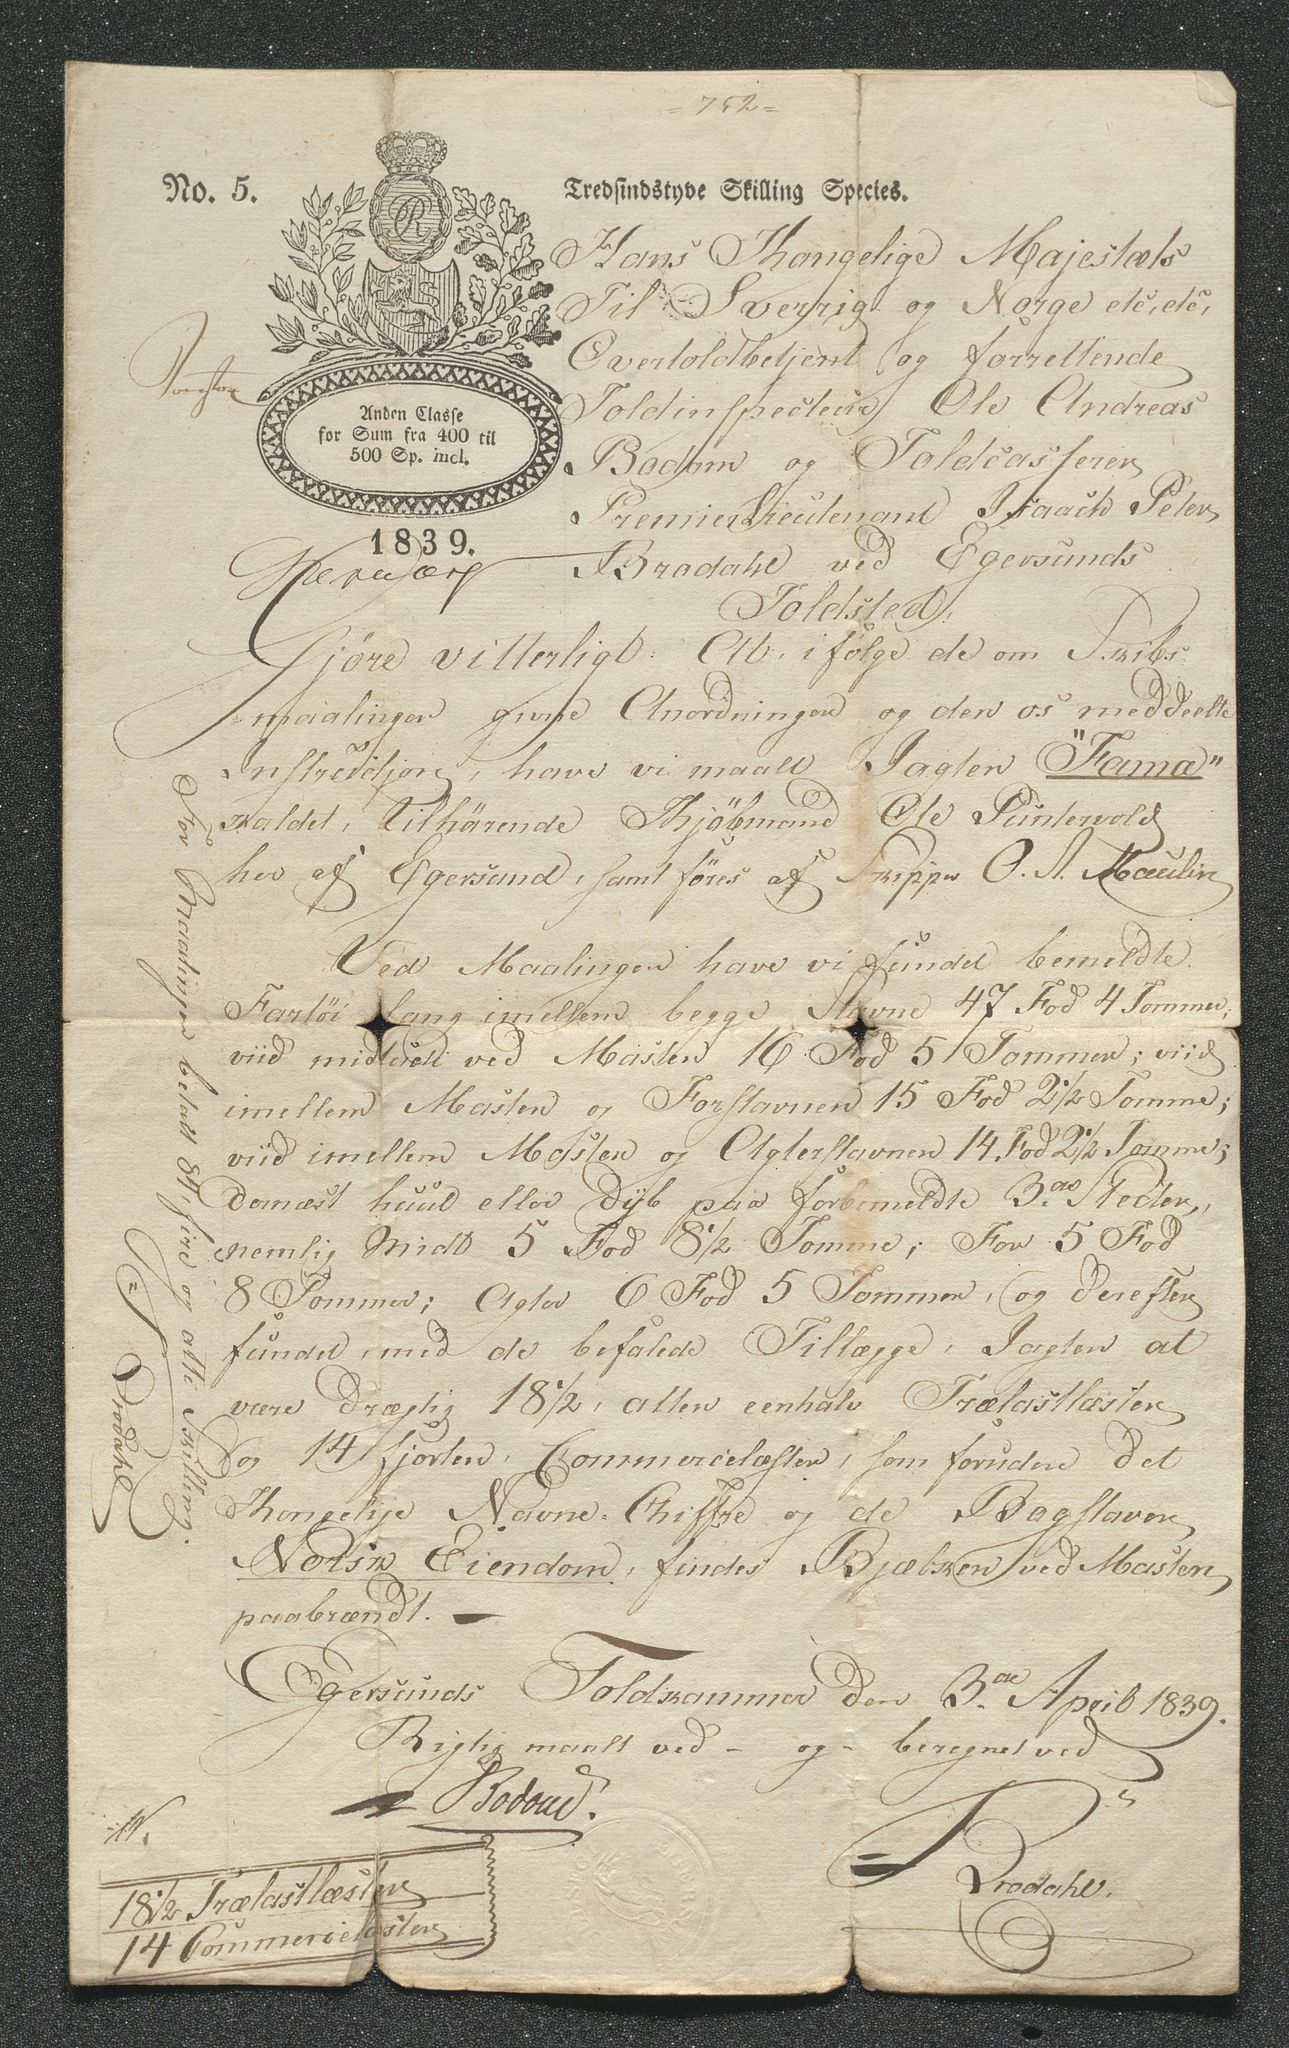 = 752 =
No. 5.
Tredsindstyve Skilling Species.
R
Anden Classe
for Sum fra 400 til
500 Sp. incl.
1839.
Hans Kongelige Majestæts
Til Sverrig og Norge etc, etc,
Overtoldbetjent og forrettende
Toldinspecteur Ole Andreas
Bodom og Toldcasserer
Premierlieutenant Isaach Peter
Brodahl ved Egersunds
Toldsted,
Gjöre vitterligt: At, ifölge de om Skibs-
maalinger givne Anordninger og den os meddeelte
Instruktjon, have vi maalt Jagten "Fama"
kaldet, tilhörende Kjöbmand Ole Puntervold
her af Egersund, samt föres af Skipper O. A. Maulin
Ved Maalingen have vi fundet bemeldte
Fartöi lang imellem begge Stavne 47 Fod 4 Tommer,
viid midtudi ved Masten 16 Fod 5 Tommer; viid
imellem Masten og Forstavnen 15 Fod 2 1/2 Tomme;
viid imellem Masten og Agterstavnen 14 Fod 2 1/2 Tomme;
dernæst huul eller dyb paa forbemeldte 3de Steder,
nemlig Midt 5 Fod 8 1/2 Tomme; For 5 Fod
8 Tommer; Agter 6 Fod 5 Tommer, og derefter
fundet, med de befalede Tillægge, Jagten at
være drægtig 18 1/2, atten eenhalv Trælastlæster
og 14 fjorten, Commercelæster, som foruden det
Kongelige Navne-Chiffre og de Bogstaver
Norsk Eiendom, findes Bjælken ved Masten
paabrændt. —
Egersunds Toldkammer den 3de April 1839.
Rigtig maalt ved - og - beregnet ved
Bodom.
Brodahl.
18 1/2 Trælastlæster
14 Commercelæster
For Maalingen betalt 84, fire og otti Skilling.
Brodahl